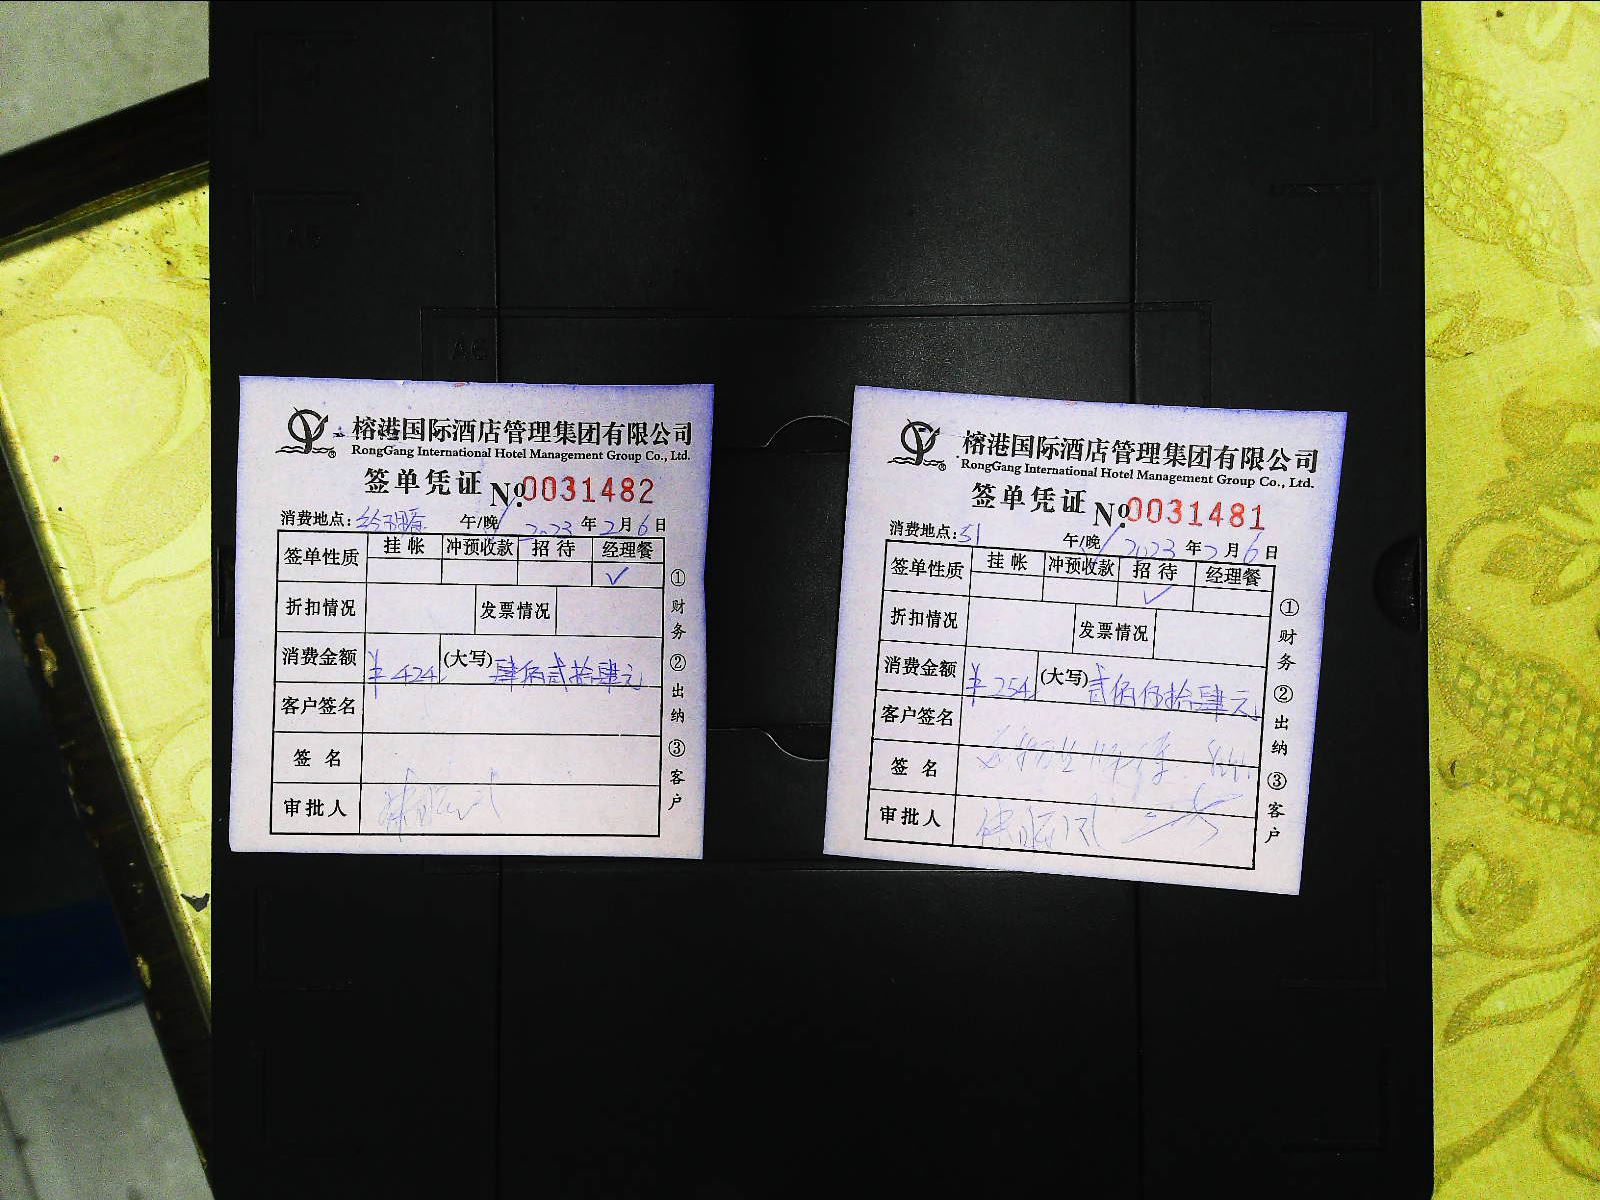 榕港国际酒店管理集团有限公司
RongGang International Hotel Management Group Co., Ltd.
签单凭证 No.0031482
消费地点: 午/晚 2023年2月6日
签单性质 挂帐 冲预收款 招待 经理餐
✓
折扣情况 发票情况
消费金额 ¥424 (大写) 肆佰贰拾肆元
客户签名
签名
审批人
①财务 ②出纳 ③客户
榕港国际酒店管理集团有限公司
RongGang International Hotel Management Group Co., Ltd.
签单凭证 No.0031481
消费地点: 午/晚 2023年2月6日
签单性质 挂帐 冲预收款 招待 经理餐
✓
折扣情况 发票情况
消费金额 ¥254 (大写) 贰佰伍拾肆元
客户签名
签名
审批人
①财务 ②出纳 ③客户
A6